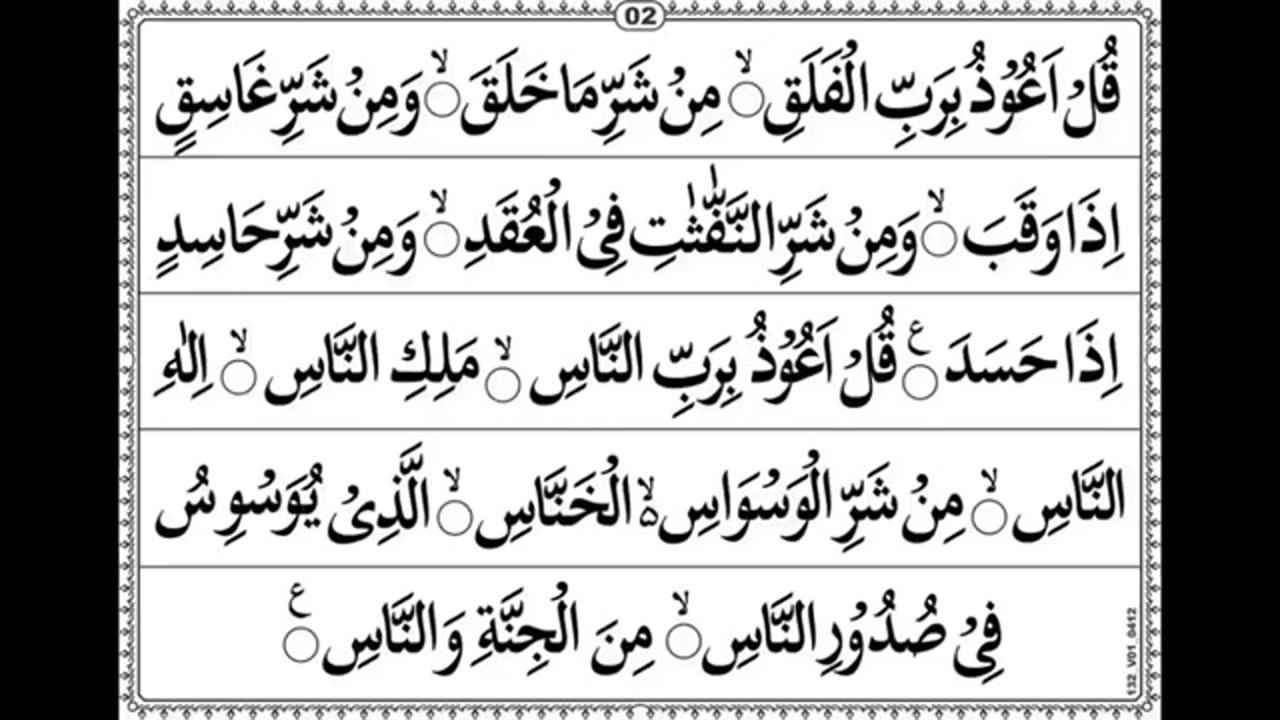 02
قُلۡ اَعُوۡذُ بِرَبِّ الۡفَلَقِ ۙ‏ مِنۡ شَرِّ مَا خَلَقَ ۙ‏ وَمِنۡ شَرِّ غَاسِقٍ
اِذَا وَقَبَ ۙ‏ وَمِنۡ شَرِّ النَّفّٰثٰتِ فِى الۡعُقَدِ ۙ‏ وَمِنۡ شَرِّ حَاسِدٍ
اِذَا حَسَدَ ع قُلۡ اَعُوۡذُ بِرَبِّ النَّاسِ ۙ‏ مَلِكِ النَّاسِ ۙ‏ اِلٰهِ
النَّاسِ ۙ‏ مِنۡ شَرِّ الۡوَسۡوَاسِ ۙ۵ الۡخَـنَّاسِ ۙ‏ الَّذِىۡ يُوَسۡوِسُ
فِىۡ صُدُوۡرِ النَّاسِ ۙ‏ مِنَ الۡجِنَّةِ وَالنَّاسِ ع
132 V01 0412